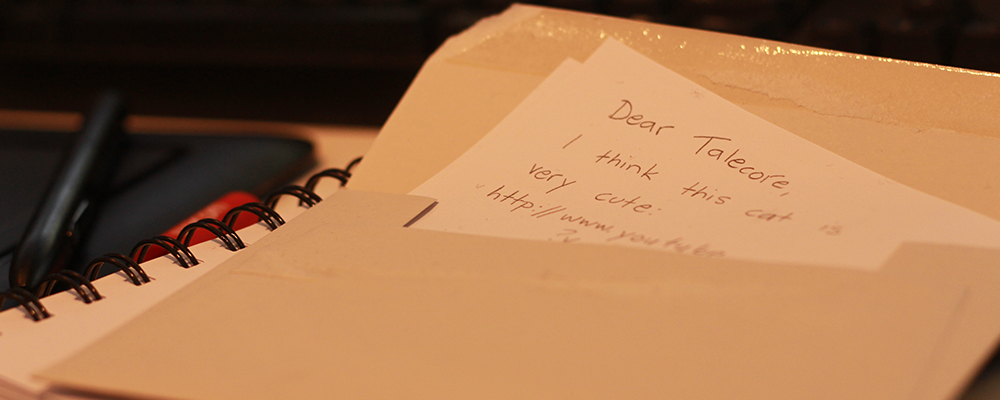 Dear Talecore,
I think this cat is
very cute:
http://www.youtube
?v